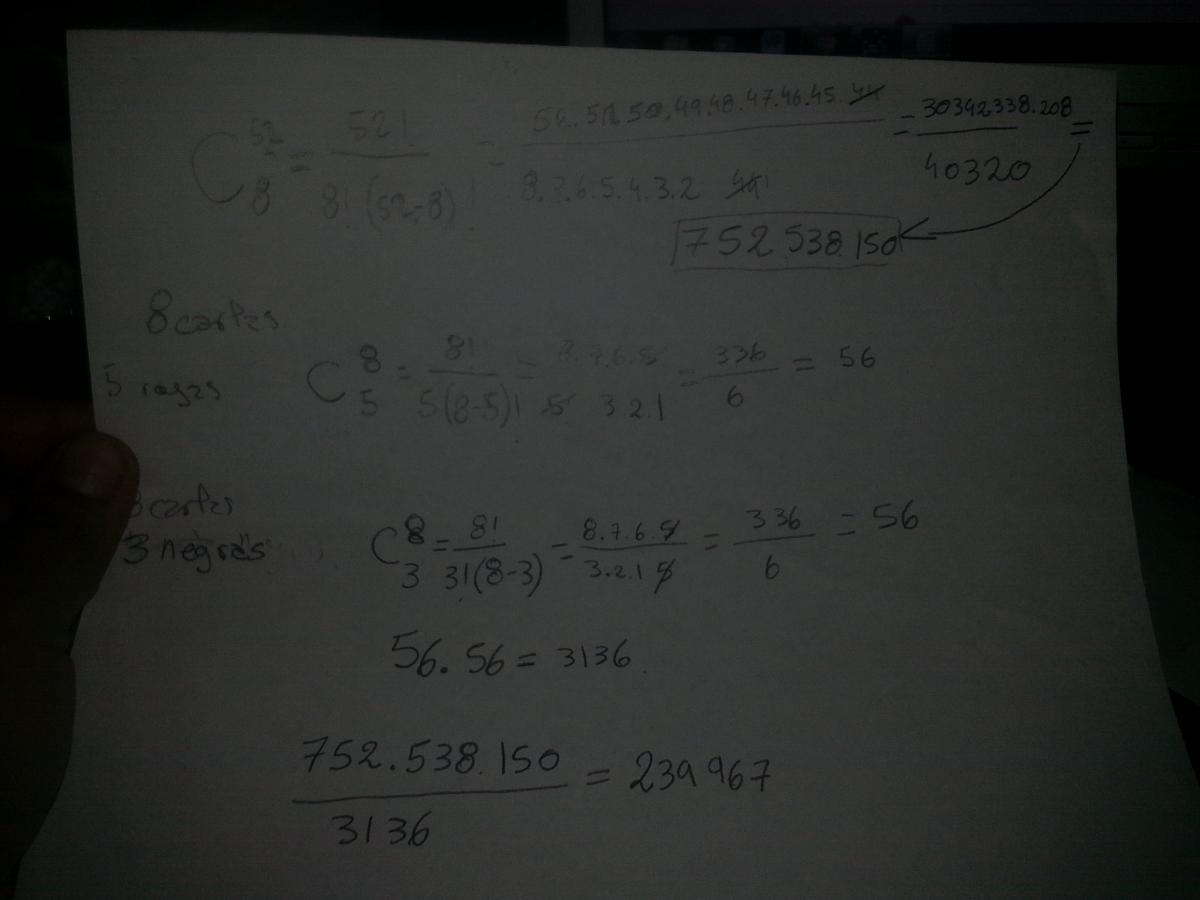 C 52 8 = 52! / 8! (52-8)! = 52.51.50.49.48.47.46.45.44 / 8.7.6.5.4.3.2 44! = 30342338.208 / 40320 =
752.538.150
8 cartas
5 rojas C 8 5 = 8! / 5(8-5)! = 8.7.6.5 / 5 3.2.1 = 336 / 6 = 56
8 cartas
3 negras C 8 3 = 8! / 3!(8-3) = 8.7.6.5 / 3.2.1 5 = 336 / 6 = 56
56.56 = 3136
752.538.150 / 3136 = 239967